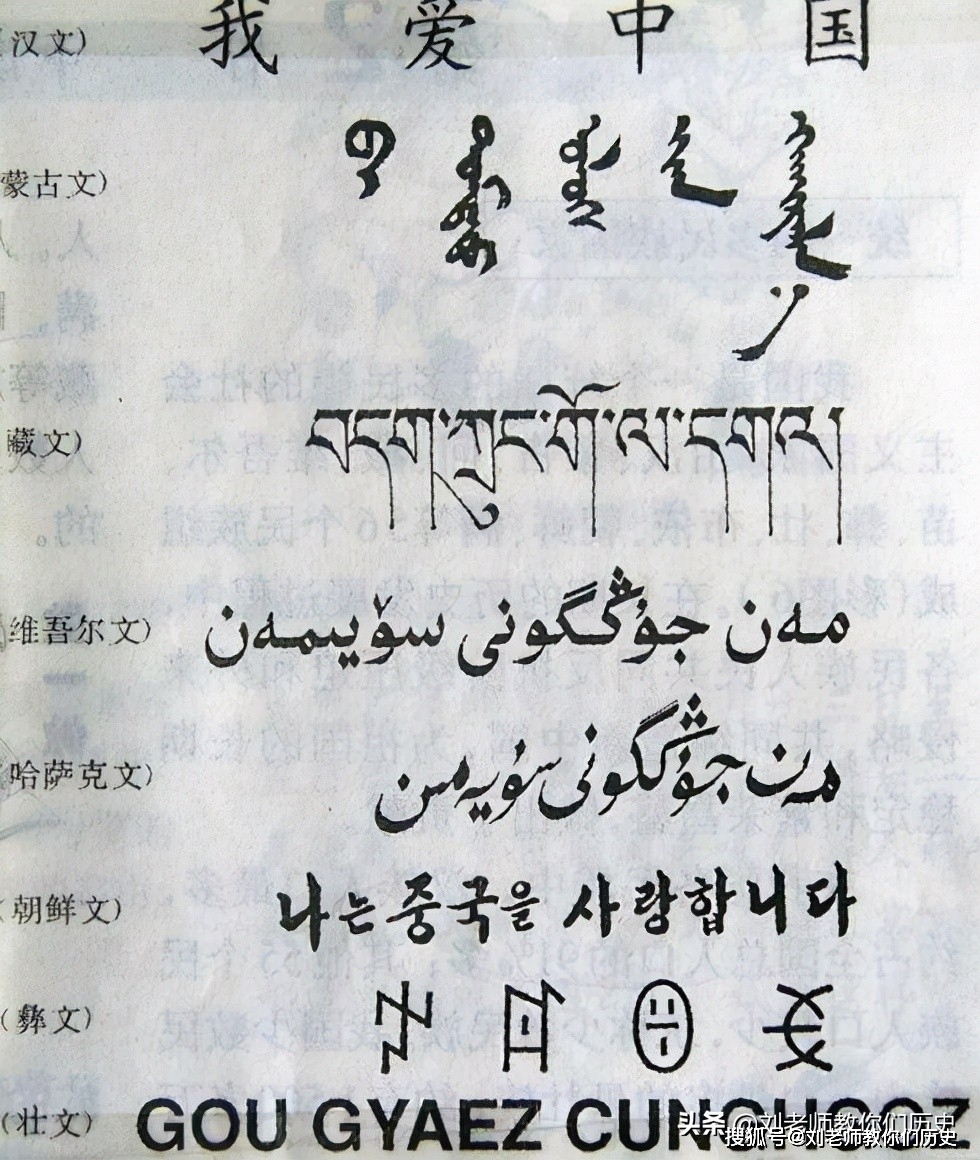 (汉文) 我 爱 中 国
蒙古文)
藏文) བདག་ཀྲུང་གོ་ལ་དགའ།
维吾尔文) مەن جۇڭگونى سۆيىمەن
哈萨克文) مەن جۇڭگونى سۇيەمىن
(朝鲜文) 나는 중국을 사랑합니다
(彝文)
(壮文) GOU GYAEZ CUNGHGOZ
头条 @刘老师教你们历史
搜狐号@刘老师教你们历史